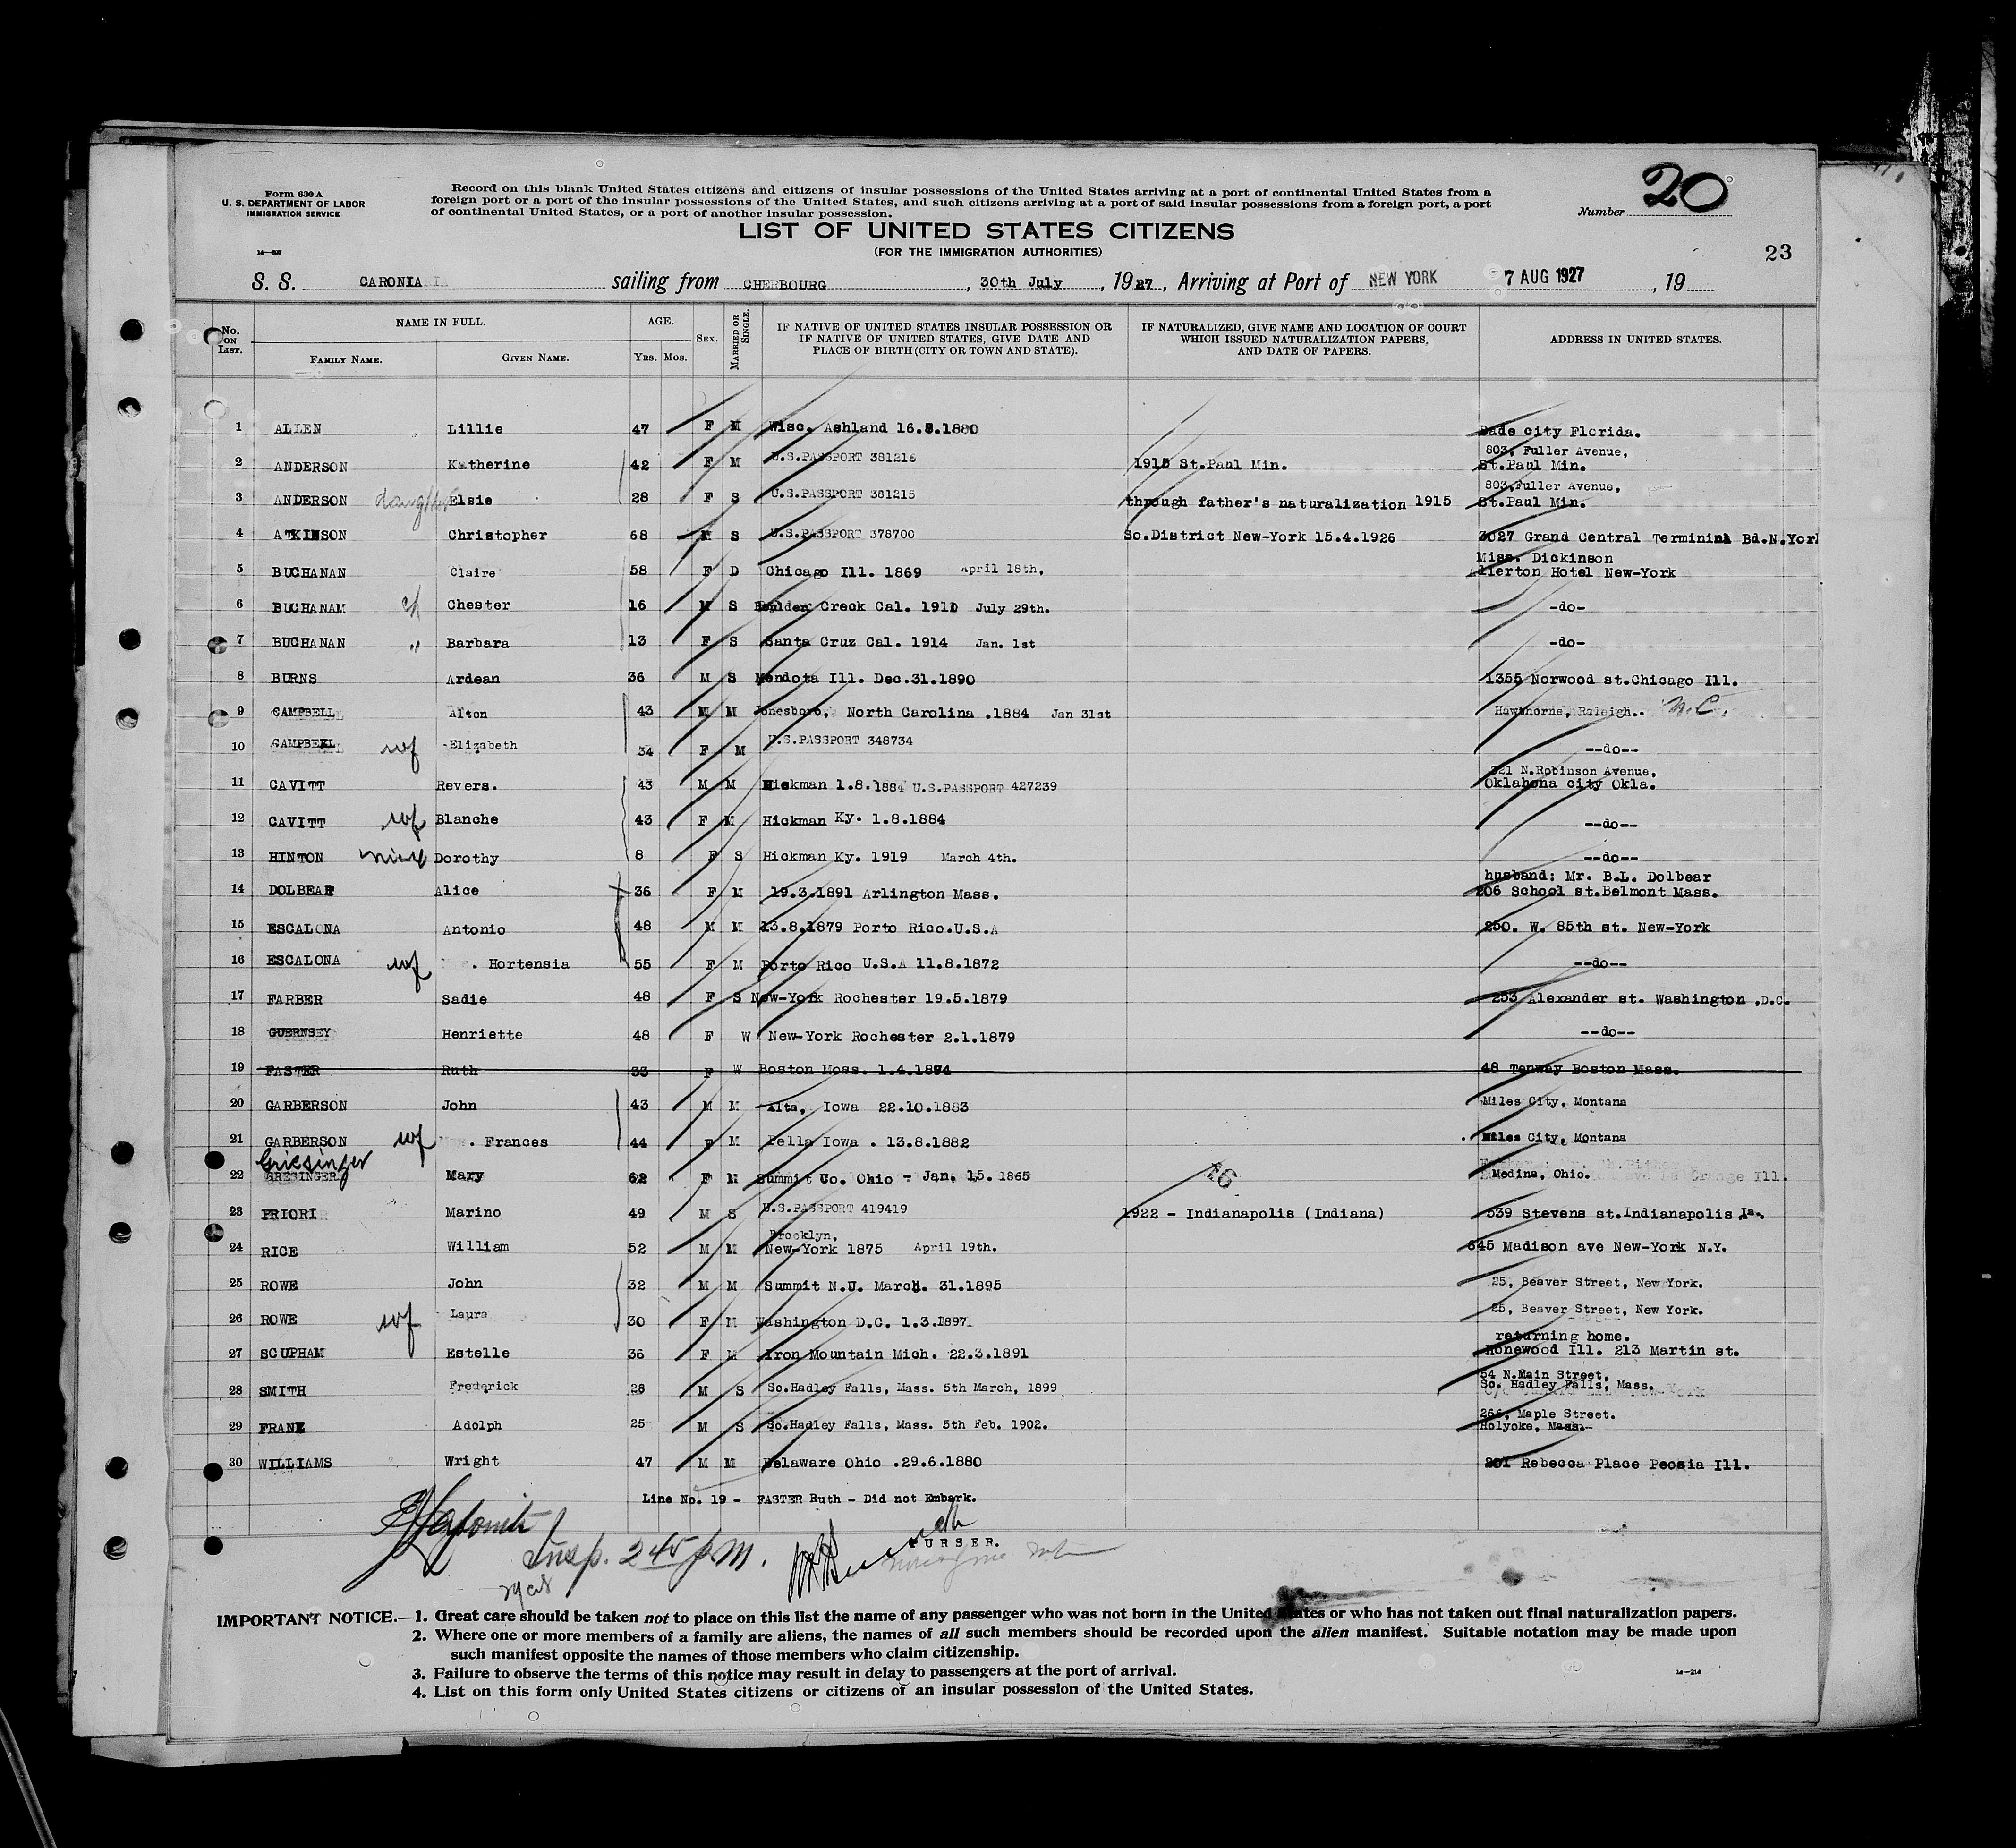 20
Form 630 A
U. S. DEPARTMENT OF LABOR
IMMIGRATION SERVICE
Record on this blank United States citizens and citizens of insular possessions of the United States arriving at a port of continental United States from a
foreign port or a port of the insular possessions of the United States, and such citizens arriving at a port of said insular possessions from a foreign port, a port
of continental United States, or a port of another insular possession.
Number
LIST OF UNITED STATES CITIZENS
(FOR THE IMMIGRATION AUTHORITIES)
23
S. S. CARONIA sailing from CHERBOURG, 30th July, 1927, Arriving at Port of NEW YORK 7 AUG 1927, 19
No. ON LIST. NAME IN FULL. FAMILY NAME. GIVEN NAME. AGE. Yrs. Mos. SEX. MARRIED OR SINGLE. IF NATIVE OF UNITED STATES INSULAR POSSESSION OR IF NATIVE OF UNITED STATES, GIVE DATE AND PLACE OF BIRTH (CITY OR TOWN AND STATE). IF NATURALIZED, GIVE NAME AND LOCATION OF COURT WHICH ISSUED NATURALIZATION PAPERS, AND DATE OF PAPERS. ADDRESS IN UNITED STATES.
1 ALLEN Lillie 47 F M Wisc. Ashland 16.8.1880 Dade city Florida.
2 ANDERSON Katherine 42 F M U.S.PASSPORT 381215 1915 St.Paul Min. 803, Fuller Avenue, St.Paul Min.
3 ANDERSON daughter Elsie 28 F S U.S.PASSPORT 381215 through father's naturalization 1915 803,Fuller Avenue, St.Paul Min.
4 ATKINSON Christopher 68 M S U.S.PASSPORT 378700 So.District New-York 15.4.1926 3027 Grand Central Terminal Bd.N.York
5 BUCHANAN Claire 58 F D Chicago Ill. 1869 April 18th, Miss. Dickinson Allerton Hotel New-York
6 BUCHANAM ch Chester 16 M S Boulder Creek Cal. 1911 July 29th. -do-
7 BUCHANAN " Barbara 13 F S Santa Cruz Cal. 1914 Jan. 1st -do-
8 BURNS Ardean 36 M S Mendota Ill. Dec.31.1890 1355 Norwood st.Chicago Ill.
9 CAMPBELL Alton 43 M M Jonesboro, North Carolina .1884 Jan 31st Hawthorne, Raleigh.. N.C.
10 CAMPBELL wf Elizabeth 34 F M U.S.PASSPORT 348734 --do--
11 CAVITT Revers. 43 M M Hickman 1.8.1884 U.S.PASSPORT 427239 321 N.Robinson Avenue, Oklahona city Okla.
12 CAVITT wf Blanche 43 F M Hickman Ky. 1.8.1884 --do--
13 HINTON niece Dorothy 8 F S Hickman Ky. 1919 March 4th. --do--
14 DOLBEAR Alice 36 F M 19.3.1891 Arlington Mass. husband: Mr. B.L. Dolbear 206 School st.Belmont Mass.
15 ESCALONA Antonio 48 M M 13.8.1879 Porto Rico.U.S.A 250. W. 85th st. New-York
16 ESCALONA wf . Hortensia 55 F M Porto Rico U.S.A 11.8.1872 --do--
17 FARBER Sadie 48 F S New-York Rochester 19.5.1879 253 Alexander st. Washington ,D.C.
18 GUERNSEY Henriette 48 F W New-York Rochester 2.1.1879 --do--
19 FASTER Ruth 33 F W Boston Moss. 1.4.1894 48 Tenway Boston Mass.
20 GARBERSON John 43 M M Alta, Iowa 22.10.1883 Miles City, Montana
21 GARBERSON wf . Frances 44 F M Pella Iowa . 13.8.1882 Miles City, Montana
Griesinger
22 GRESINGER Mary 62 F M Summit Co. Ohio - Jan. 15. 1865 16 Medina, Ohio.
23 PRIORI Marino 49 M S U.S.PASSPORT 419419 1922 - Indianapolis (Indiana) 539 Stevens st.Indianapolis Ia.
24 RICE William 52 M M Brooklyn, New-York 1875 April 19th. 645 Madison ave New-York N.Y.
25 ROWE John 32 M M Summit N.J. March. 31.1895 25, Beaver Street, New York.
26 ROWE wf Laura 30 F M Washington D.C. 1.3.1897 25, Beaver Street, New York.
27 SCUPHAM Estelle 36 F M Iron Mountain Mich. 22.3.1891 returning home. Honewood Ill. 213 Martin st.
28 SMITH Frederick 28 M S So.Hadley Falls, Mass. 5th March, 1899 54 N.Main Street, So. Hadley Falls, Mass.
29 FRANK Adolph 25 M S So.Hadley Falls, Mass. 5th Feb. 1902. 266, Maple Street. Holyoke, Mass.
30 WILLIAMS Wright 47 M M Delaware Ohio .29.6.1880 201 Rebecca Place Peosia Ill.
Line No. 19 - FASTER Ruth - Did not Embark.
Insp. 2 45 p M.
PURSER.
IMPORTANT NOTICE.—1. Great care should be taken not to place on this list the name of any passenger who was not born in the United States or who has not taken out final naturalization papers.
2. Where one or more members of a family are aliens, the names of all such members should be recorded upon the alien manifest. Suitable notation may be made upon
such manifest opposite the names of those members who claim citizenship.
3. Failure to observe the terms of this notice may result in delay to passengers at the port of arrival.
4. List on this form only United States citizens or citizens of an insular possession of the United States.
14—214